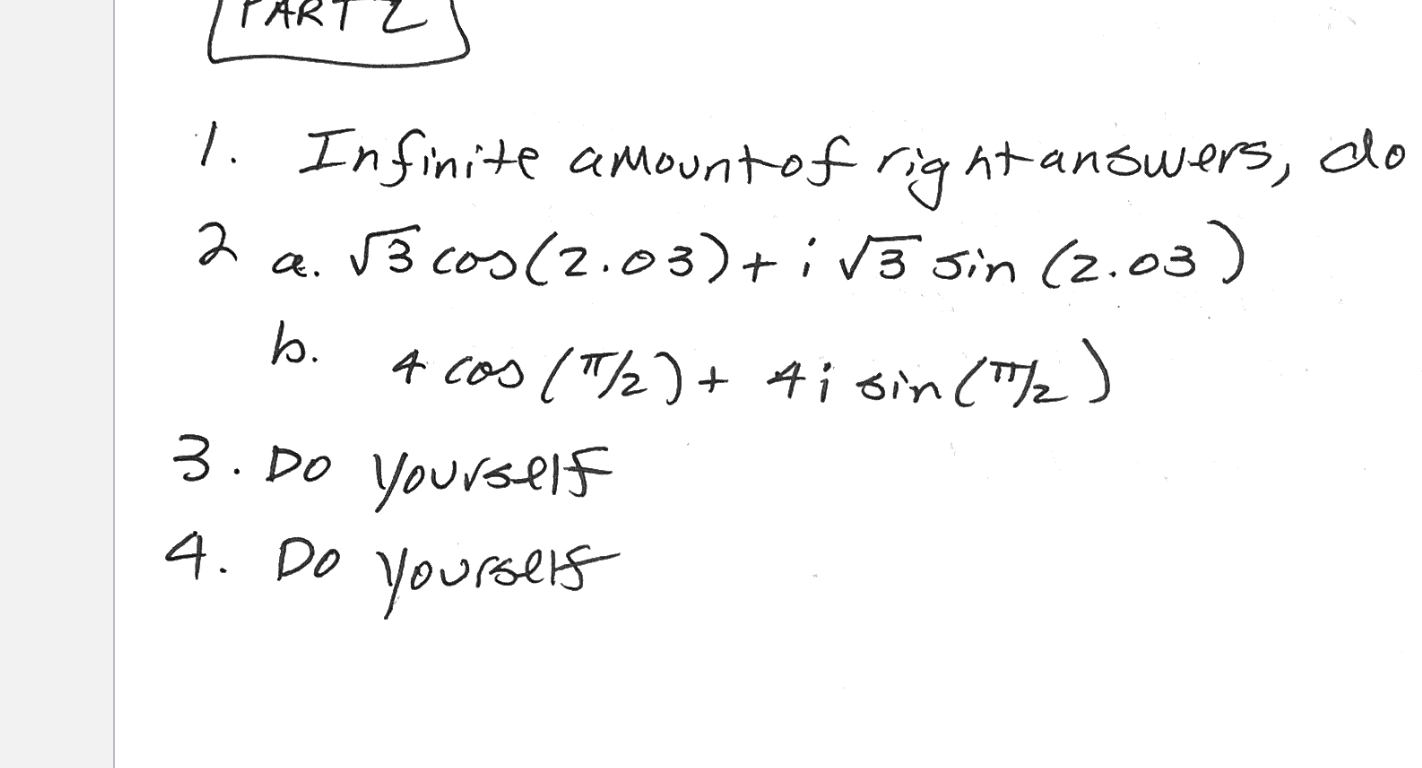 PART 2
1. Infinite amount of right answers, do
2 a. √3 cos(2.03) + i √3 sin (2.03)
b. 4 cos (π/2) + 4i sin (π/2)
3. Do yourself
4. Do yourself